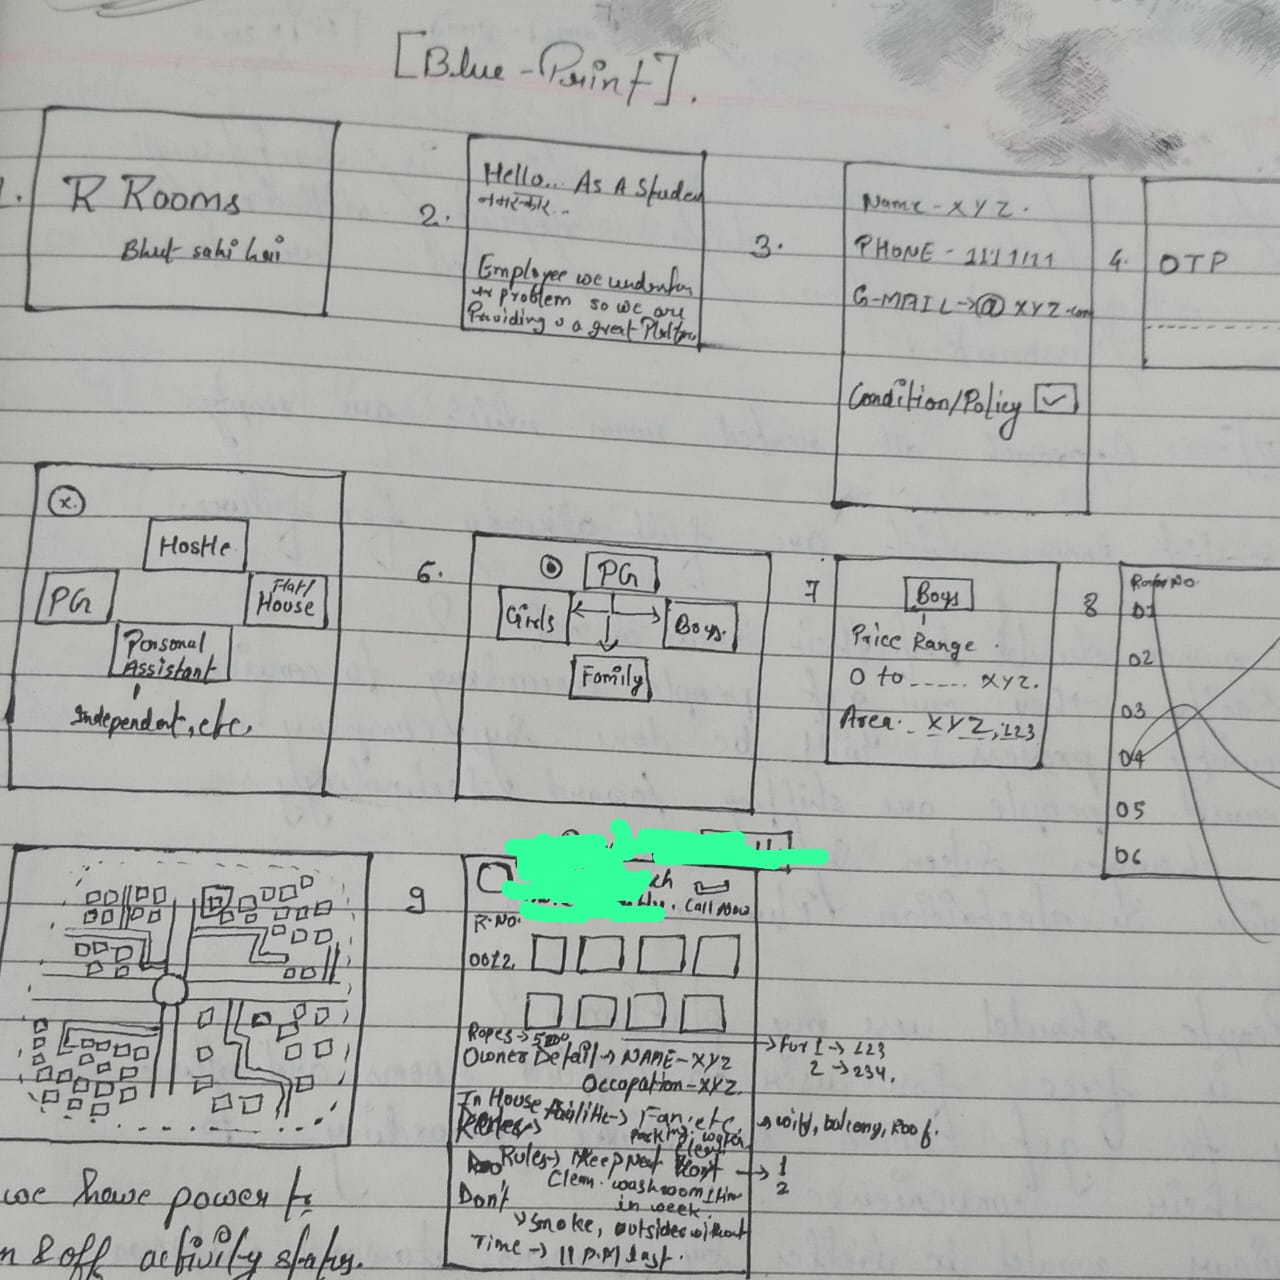 [Blue-Print].
1.
R Rooms
Bhut sahi hai
2.
Hello... As A Studen
नमस्कार..
Employee we understan
problem so we are
Providing u a great Platform
3.
Name - XYZ.
PHONE - 1111111
G-MAIL->@XYZ.com
Condition/Policy
4.
OTP
x.
Hostle
PG
Flat/
House
Personal
Assistant
Independent, etc,
6.
PG
Girls
Boys.
Family
7
Boys
Price Range.
0 to ...... XYZ.
Area. XYZ, 123
8
Room No.
01
02
03
04
05
06
9
Call Now
R.No.
0012,
Ropes -> 5000
-> For 1 -> 123
2 -> 234.
Owner Detail -> NAME - XYZ
Occopation - XYZ.
In House Failitie -> Fan, etc,
-> wifi, balcony, Roof.
Parking, water
clean
Rules -> Keep Neat
-> 1
2
Clean. washroom 1 tim
in week.
Don't
-> Smoke, outsides without
Time -> 11 P.M last.
we have power to
n & off activity status.